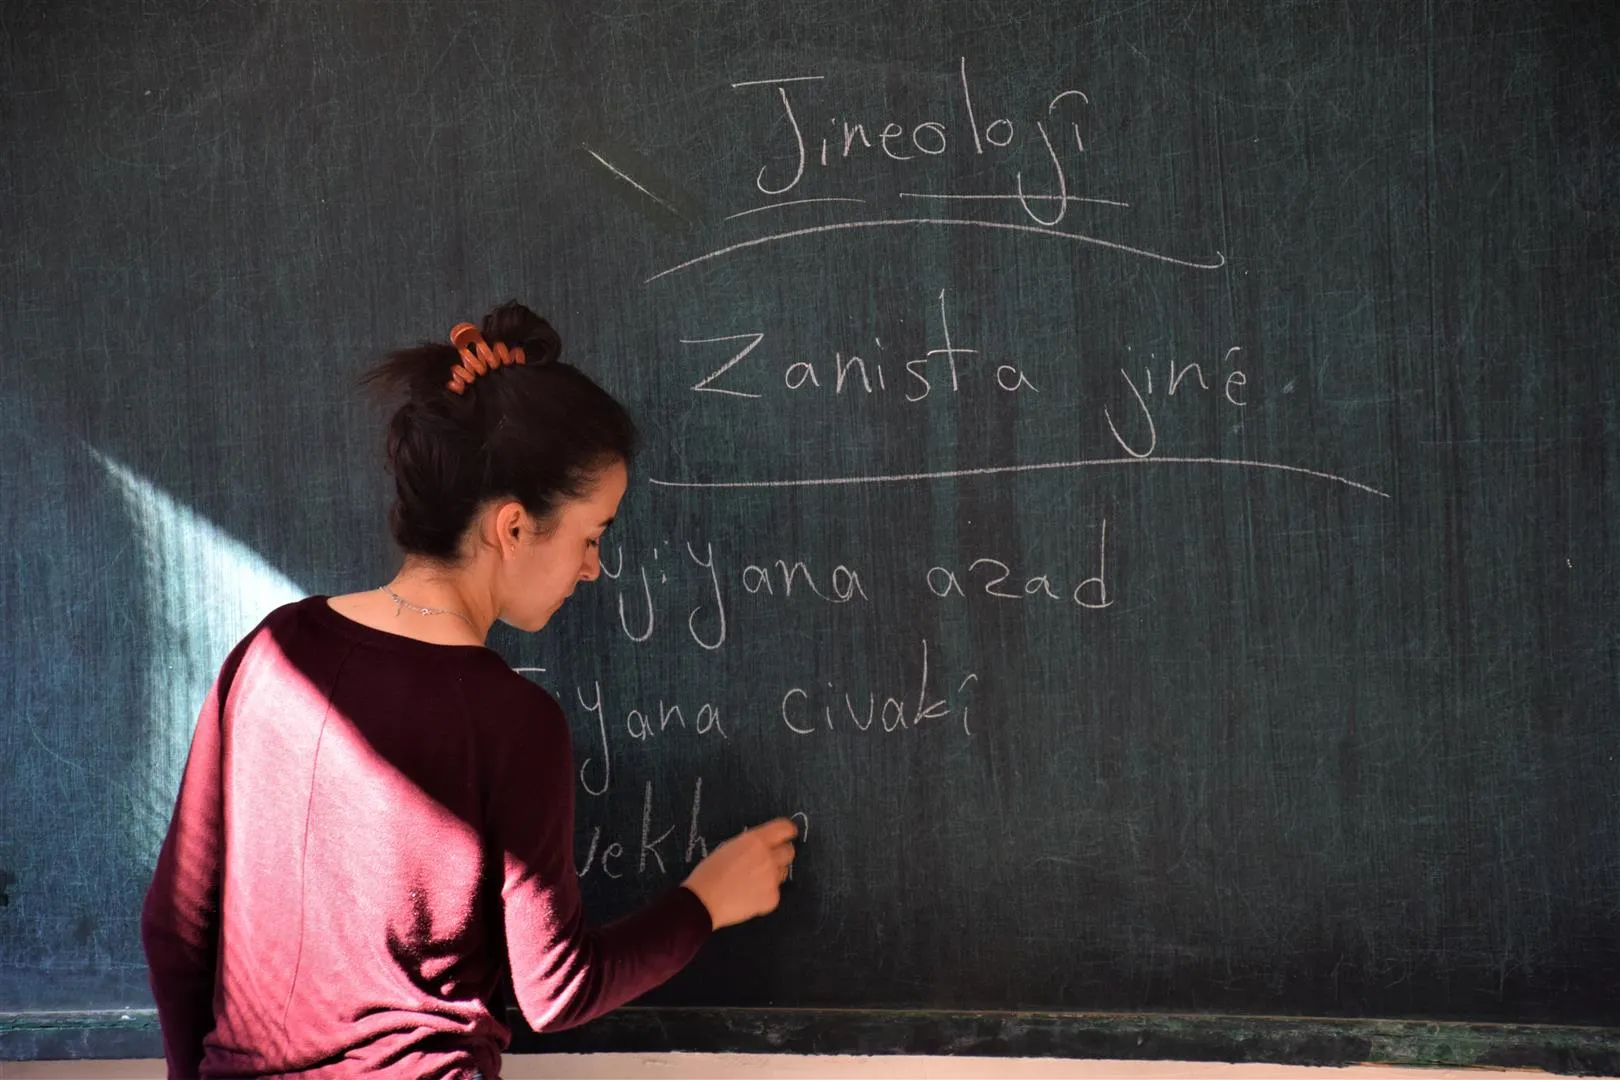 Jineolojî
Zanista jinê
jiyana azad
Jiyana civakî